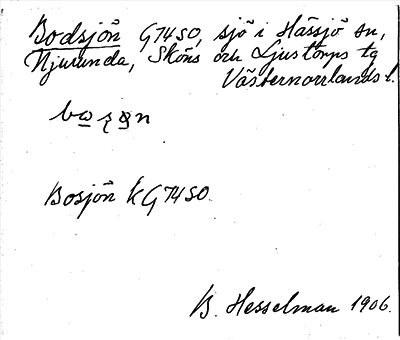 Bodsjön G74SO, sjö i Hässjö sn,
Njurunda, Sköns och Ljustorps tg
Västernorrlands l.
Bosjön k G74SO.
B. Hesselman 1906.